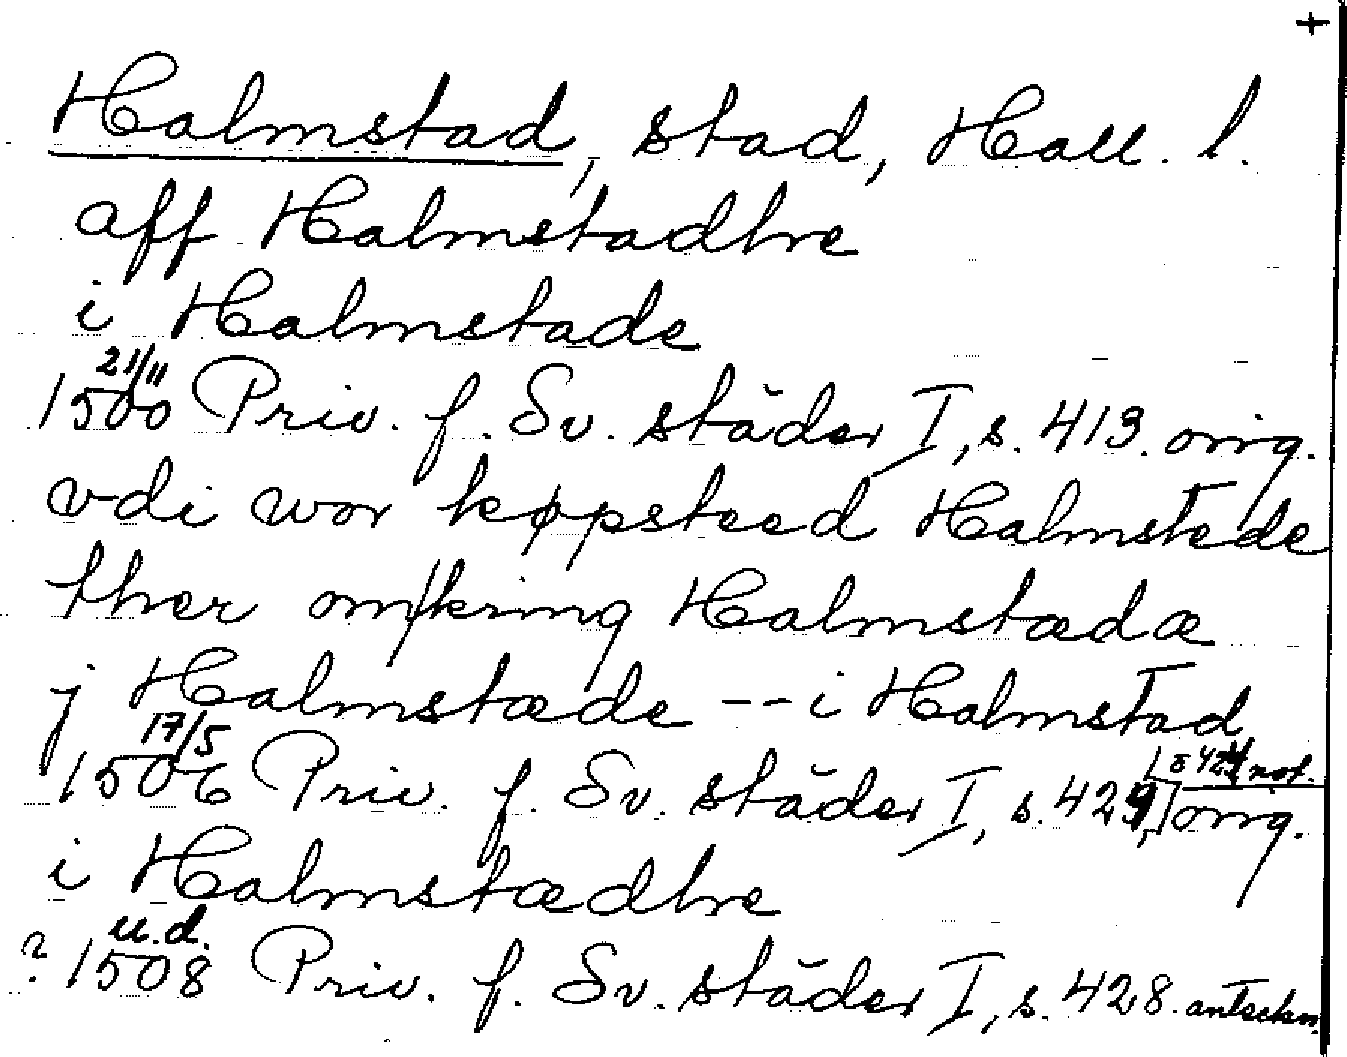 +
Halmstad, stad, Hall. l.
aff Halmstadhe
i Halmstade
21/11
1500 Priv. f. Sv. städer I, s. 413. orig.
vdi wor køpsteed Halmstede
ther om/kring Halmstædæ
j Halmstæde -- i Halmstad
17/5
1506 Priv. f. Sv. städer I, s. 429, orig.
i Halmstædhe
u.d.
? 1508 Priv. f. Sv. städer I, s. 428. anteckn.